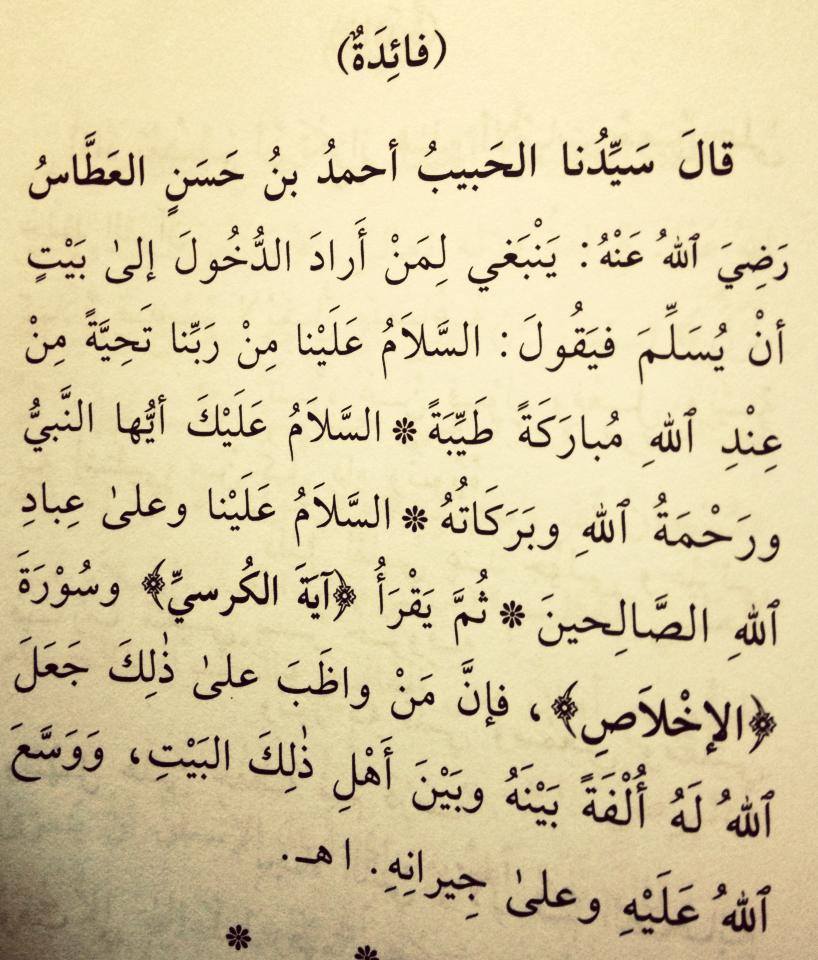 (فائِدَةٌ)
قالَ سَيِّدُنا الحَبيبُ أحمدُ بنُ حَسَنٍ العَطَّاسُ
رَضِيَ ٱللهُ عَنْهُ: يَنْبَغي لِمَنْ أَرادَ الدُّخُولَ إلىٰ بَيْتٍ
أنْ يُسَلِّمَ فيَقُولَ: السَّلاَمُ عَلَيْنا مِنْ رَبِّنا تَحِيَّةً مِنْ
عِنْدِ ٱللهِ مُبارَكَةً طَيِّبَةً ❇ السَّلاَمُ عَلَيْكَ أيُّها النَّبيُّ
ورَحْمَةُ ٱللهِ وبَرَكَاتُهُ ❇ السَّلاَمُ عَلَيْنا وعلىٰ عِبادِ
ٱللهِ الصَّالِحينَ ❇ ثُمَّ يَقْرَأُ ﴿آيَةَ الكُرسيِّ﴾ وسُوْرَةَ
﴿الإخْلاَصِ﴾، فإنَّ مَنْ واظَبَ علىٰ ذٰلِكَ جَعَلَ
ٱللهُ لَهُ أُلْفَةً بَيْنَهُ وبَيْنَ أَهْلِ ذٰلِكَ البَيْتِ، وَوَسَّعَ
ٱللهُ عَلَيْهِ وعلىٰ جِيرانِهِ. اهـ.